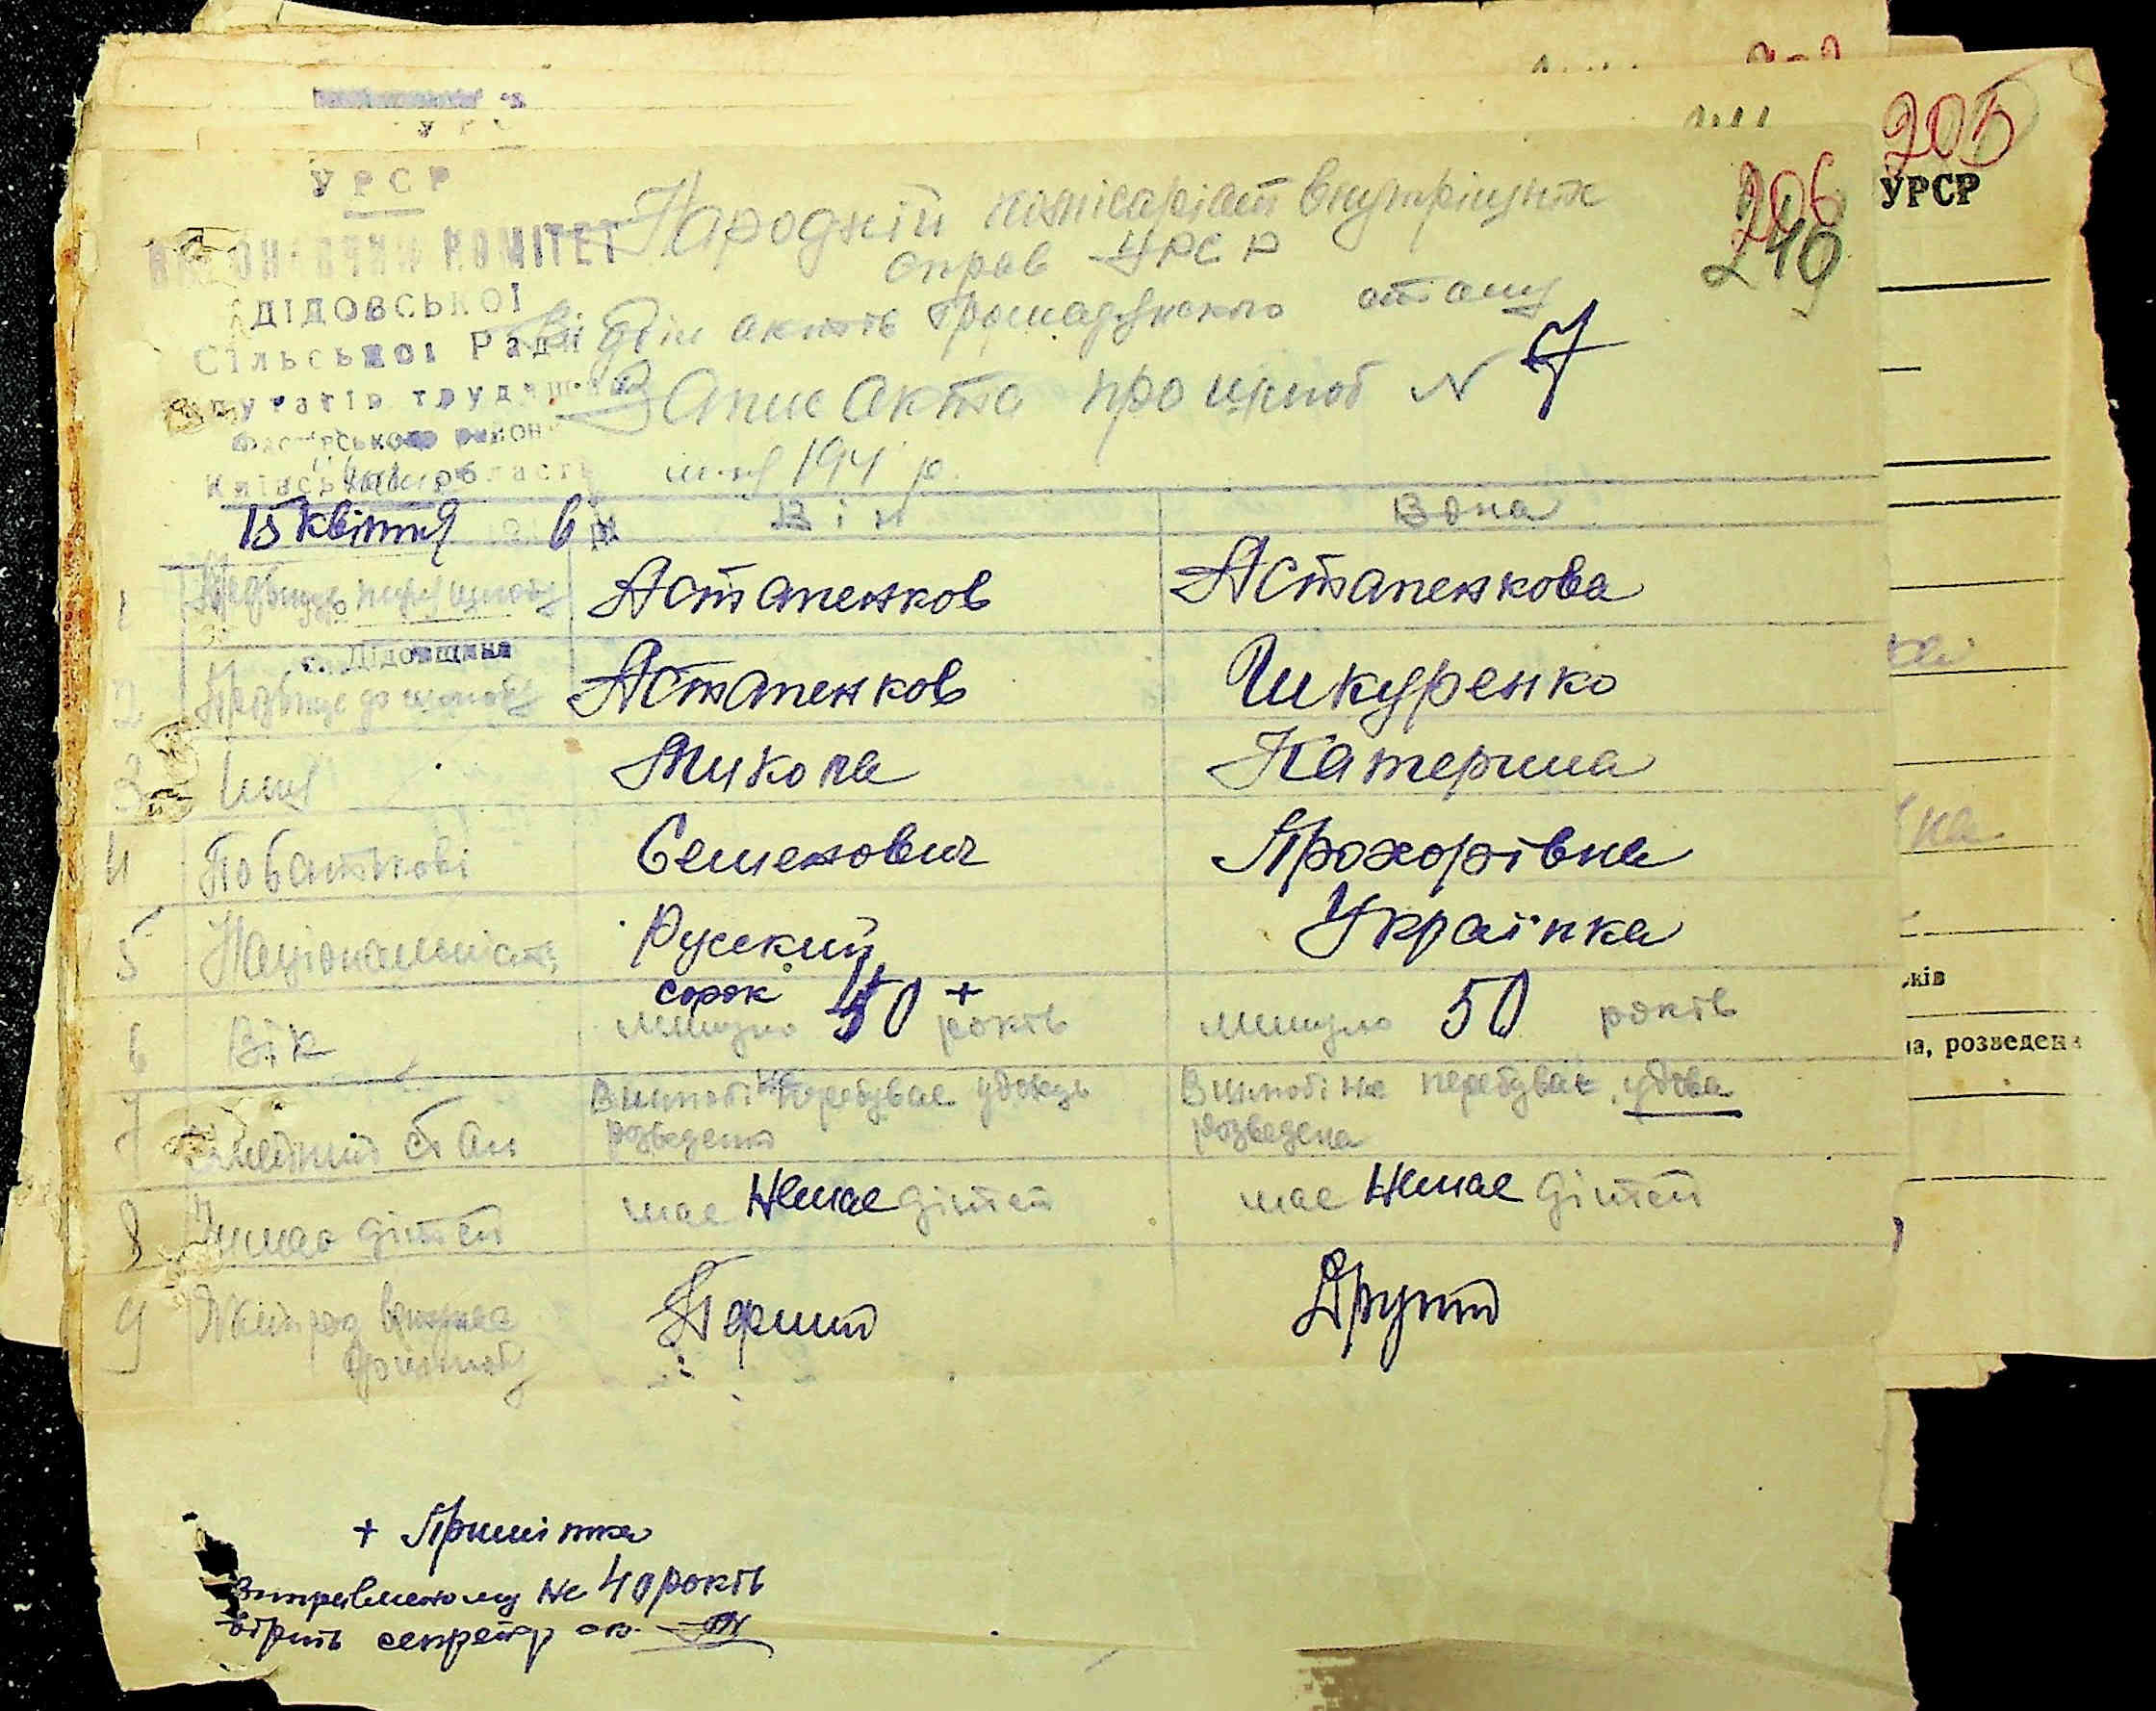 205
УРСР
206
210
УРСР
ВИКОНАВЧИЙ КОМІТЕТ
ДІДОВСЬКОЇ
Сільської Ради
депутатів трудящих
Київської області
15 квітня 6
с. Дідовщина
Народній комісаріат внутрішніх
справ УРСР
Відділ актів громадянського стану
Запис акта про шлюб N 7
194 р.
Він Вона
1 Прізвище після шлюбу Астапенков Астапенкова
2 Прізвище до шлюбу Астапенков Шкуренко
3 Імя Микола Катерина
4 По батькові Семенович Прохорівна
5 Національність Руський Українка
6 Вік минуло сорок 40 + років минуло 50 років
7 Сімейний стан В шлюбі не перебуває удовець розведений В шлюбі не перебуває, удова розведена
8 Число дітей має Немає дітей має Немає дітей
9 Який раз вступає до шлюбу Перший Другий
+ Примітка
Виправленому на 40 років
вірить секретар
ків
на, розведена